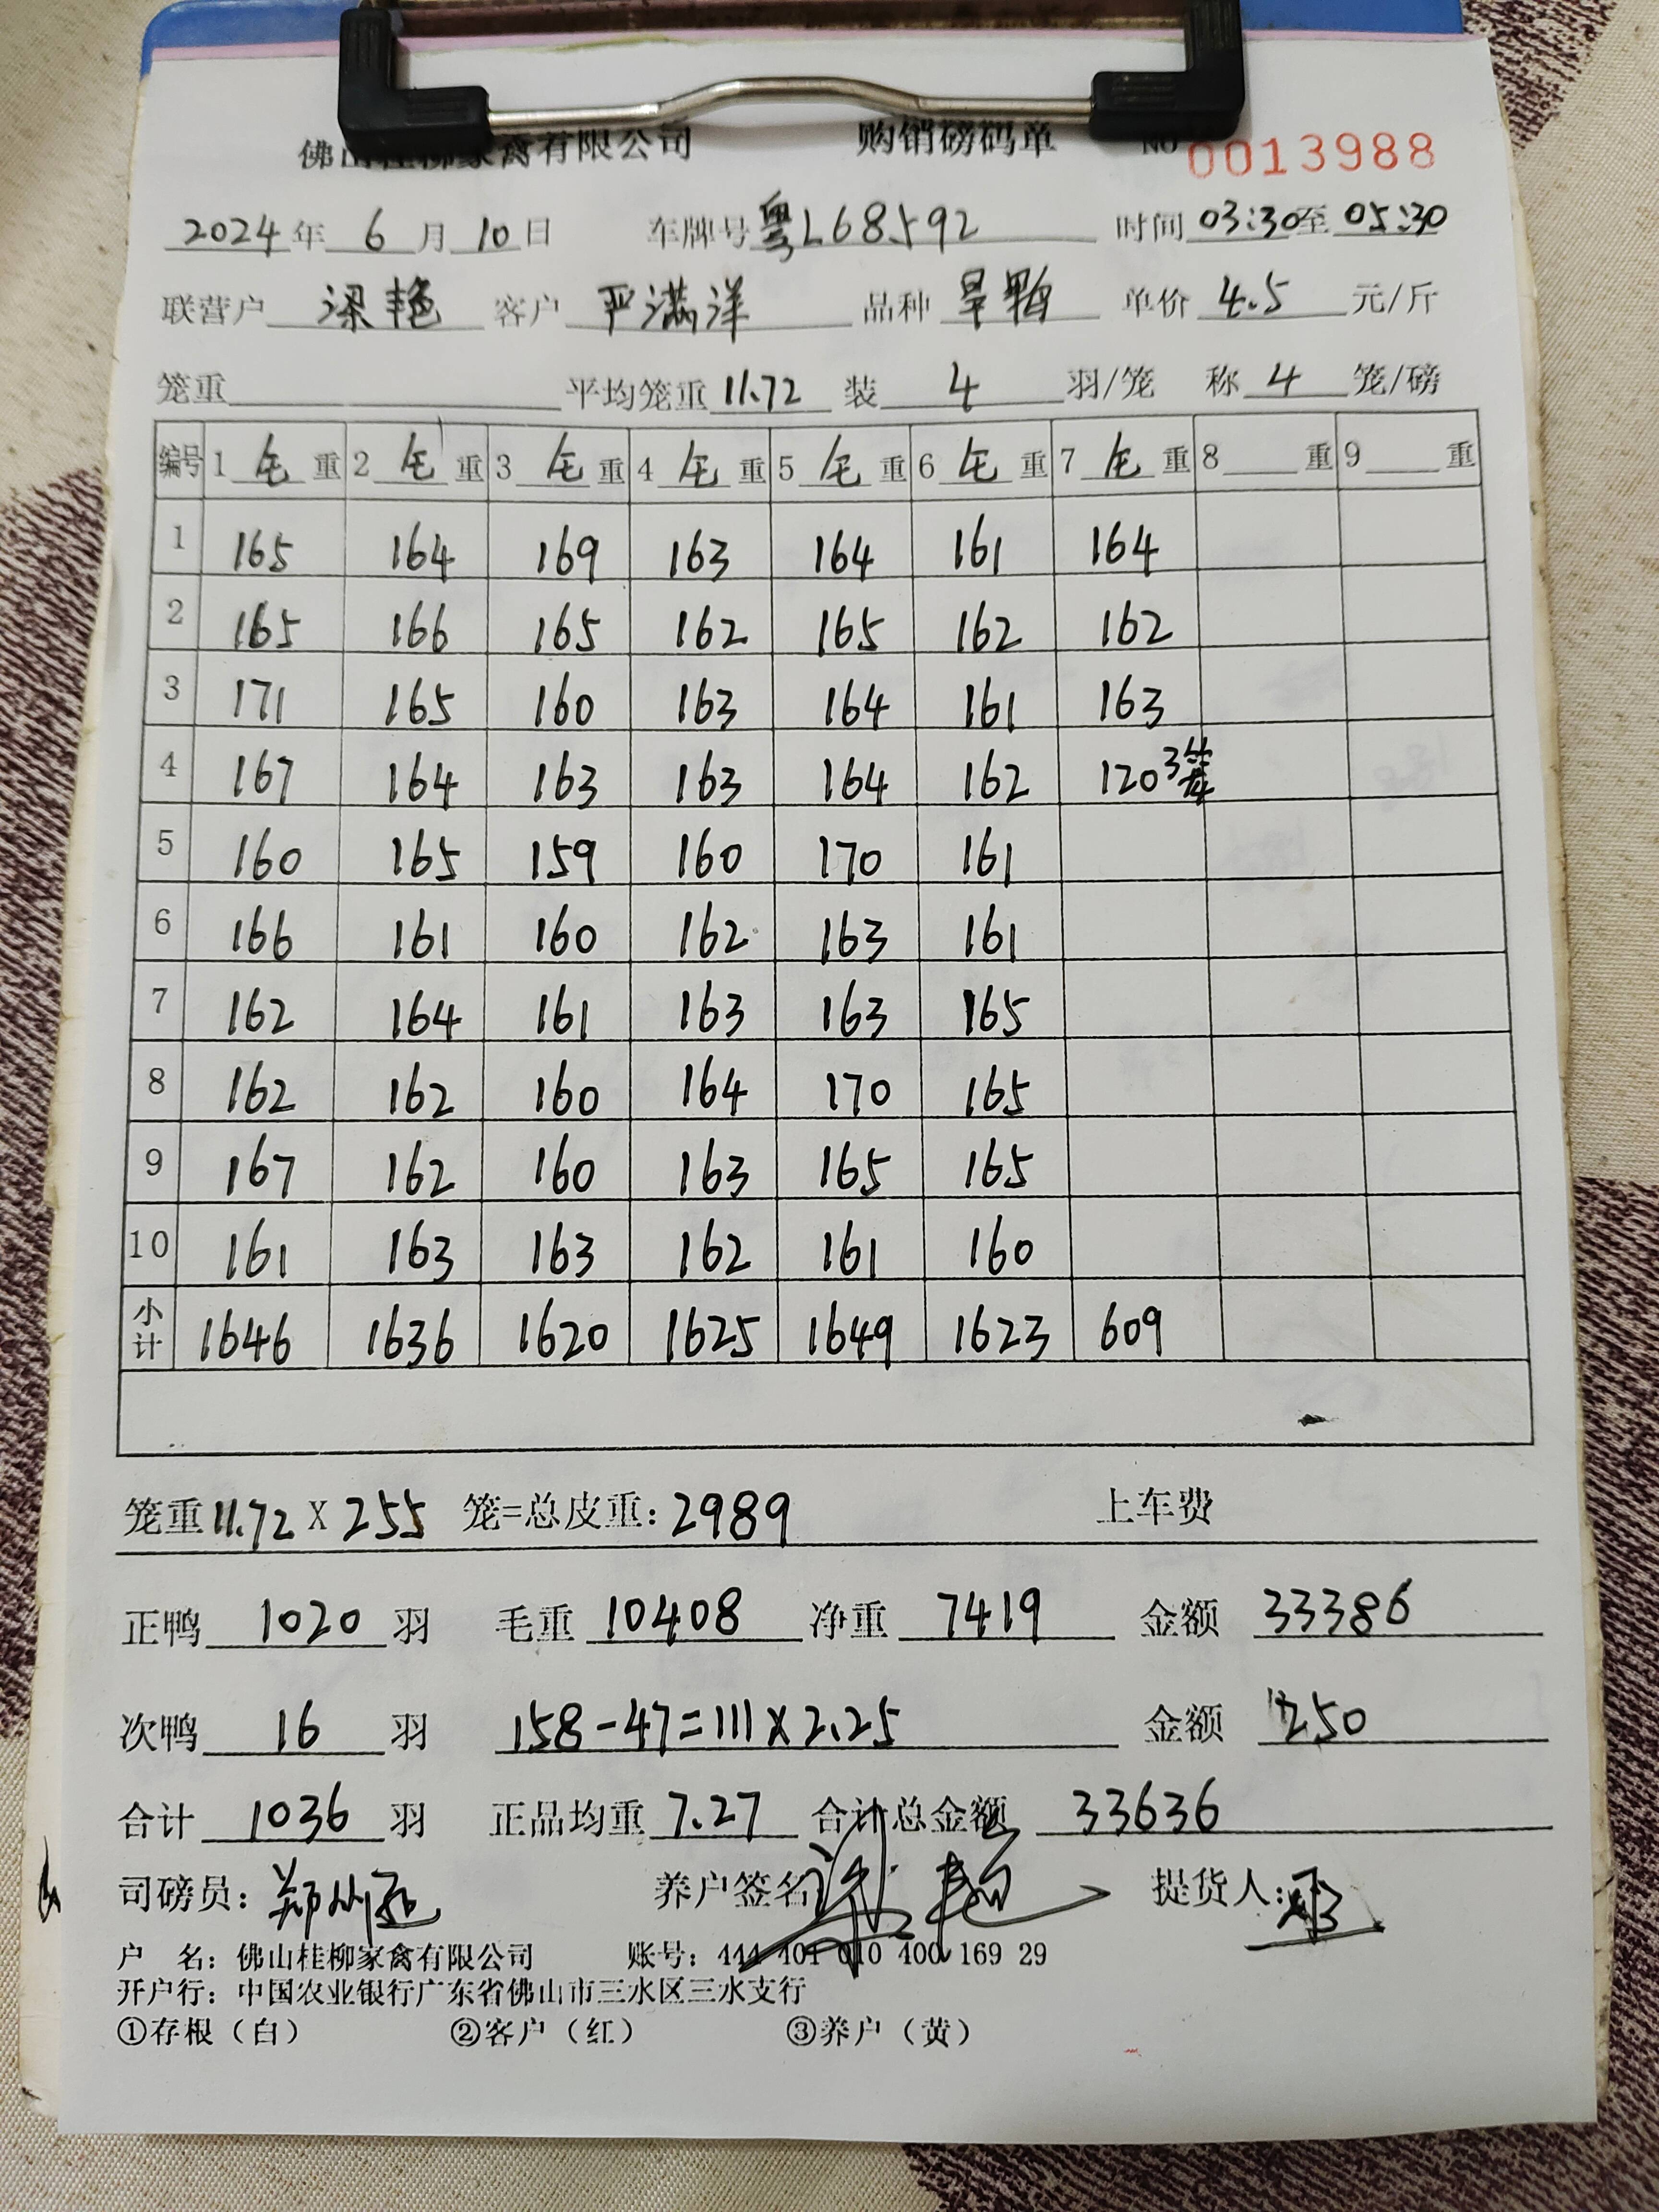 佛山桂柳家禽有限公司 购销磅码单 NO 0013988
2024年 6月 10日 车牌号 粤L68592 时间 03:30至 05:30
联营户 梁艳 客户 严满洋 品种 旱鸭 单价 4.5 元/斤
笼重 平均笼重 11.72 装 4 羽/笼 称 4 笼/磅
编号 1 毛 重 2 毛 重 3 毛 重 4 毛 重 5 毛 重 6 毛 重 7 毛 重 8 重 9 重
1 165 164 169 163 164 161 164
2 165 166 165 162 165 162 162
3 171 165 160 163 164 161 163
4 167 164 163 163 164 162 120 3笼
5 160 165 159 160 170 161
6 166 161 160 162 163 161
7 162 164 161 163 163 165
8 162 162 160 164 170 165
9 167 162 160 163 165 165
10 161 163 163 162 161 160
小计 1646 1636 1620 1625 1649 1623 609
笼重 11.72 X 255 笼=总皮重: 2989 上车费
正鸭 1020 羽 毛重 10408 净重 7419 金额 33386
次鸭 16 羽 158-47=111×2.25 金额 250
合计 1036 羽 正品均重 7.27 合计总金额 33636
司磅员: 养户签名 梁艳 提货人:
户 名: 佛山桂柳家禽有限公司 账号: 444 401 010 400 169 29
开户行: 中国农业银行广东省佛山市三水区三水支行
①存根（白） ②客户（红） ③养户（黄）